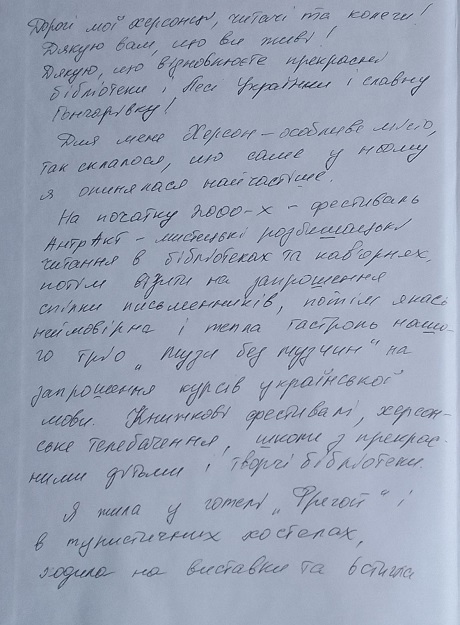 Дорогі мої херсонці, читачі та колеги!
Дякую вам, що ви живі!
Дякую, що відновлюєте прекрасні
бібліотеки і Лесі Українки і славну
Гончарівку!
Для мене Херсон – особливе місто,
так склалося, що саме у ньому
я опинялася найчастіше.
На початку 2000-х – фестиваль
АнтрАкт – мистецькі розбишацькі
читання в бібліотеках та кав'ярнях,
потім візити на запрошення
спілки письменників, потім якась
неймовірна і тепла гастроль нашо-
го тріо „Музи без музчин" на
запрошення курсів української
мови. Книжкові фестивалі, херсон-
ське телебачення, школи з прекрас-
ними дітьми і творчі бібліотеки.
Я жила у готелі „Фрегат" і
в туристичних хостелах,
ходила на виставки та встигла